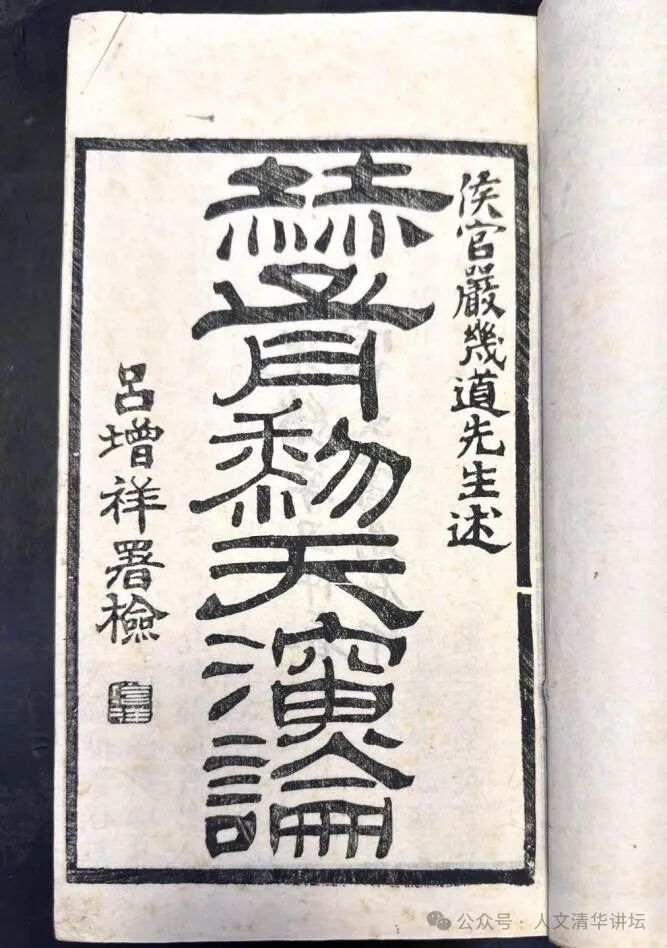 侯官嚴幾道先生述
赫胥黎天演論
呂增祥署檢
公众号·人文清华讲坛